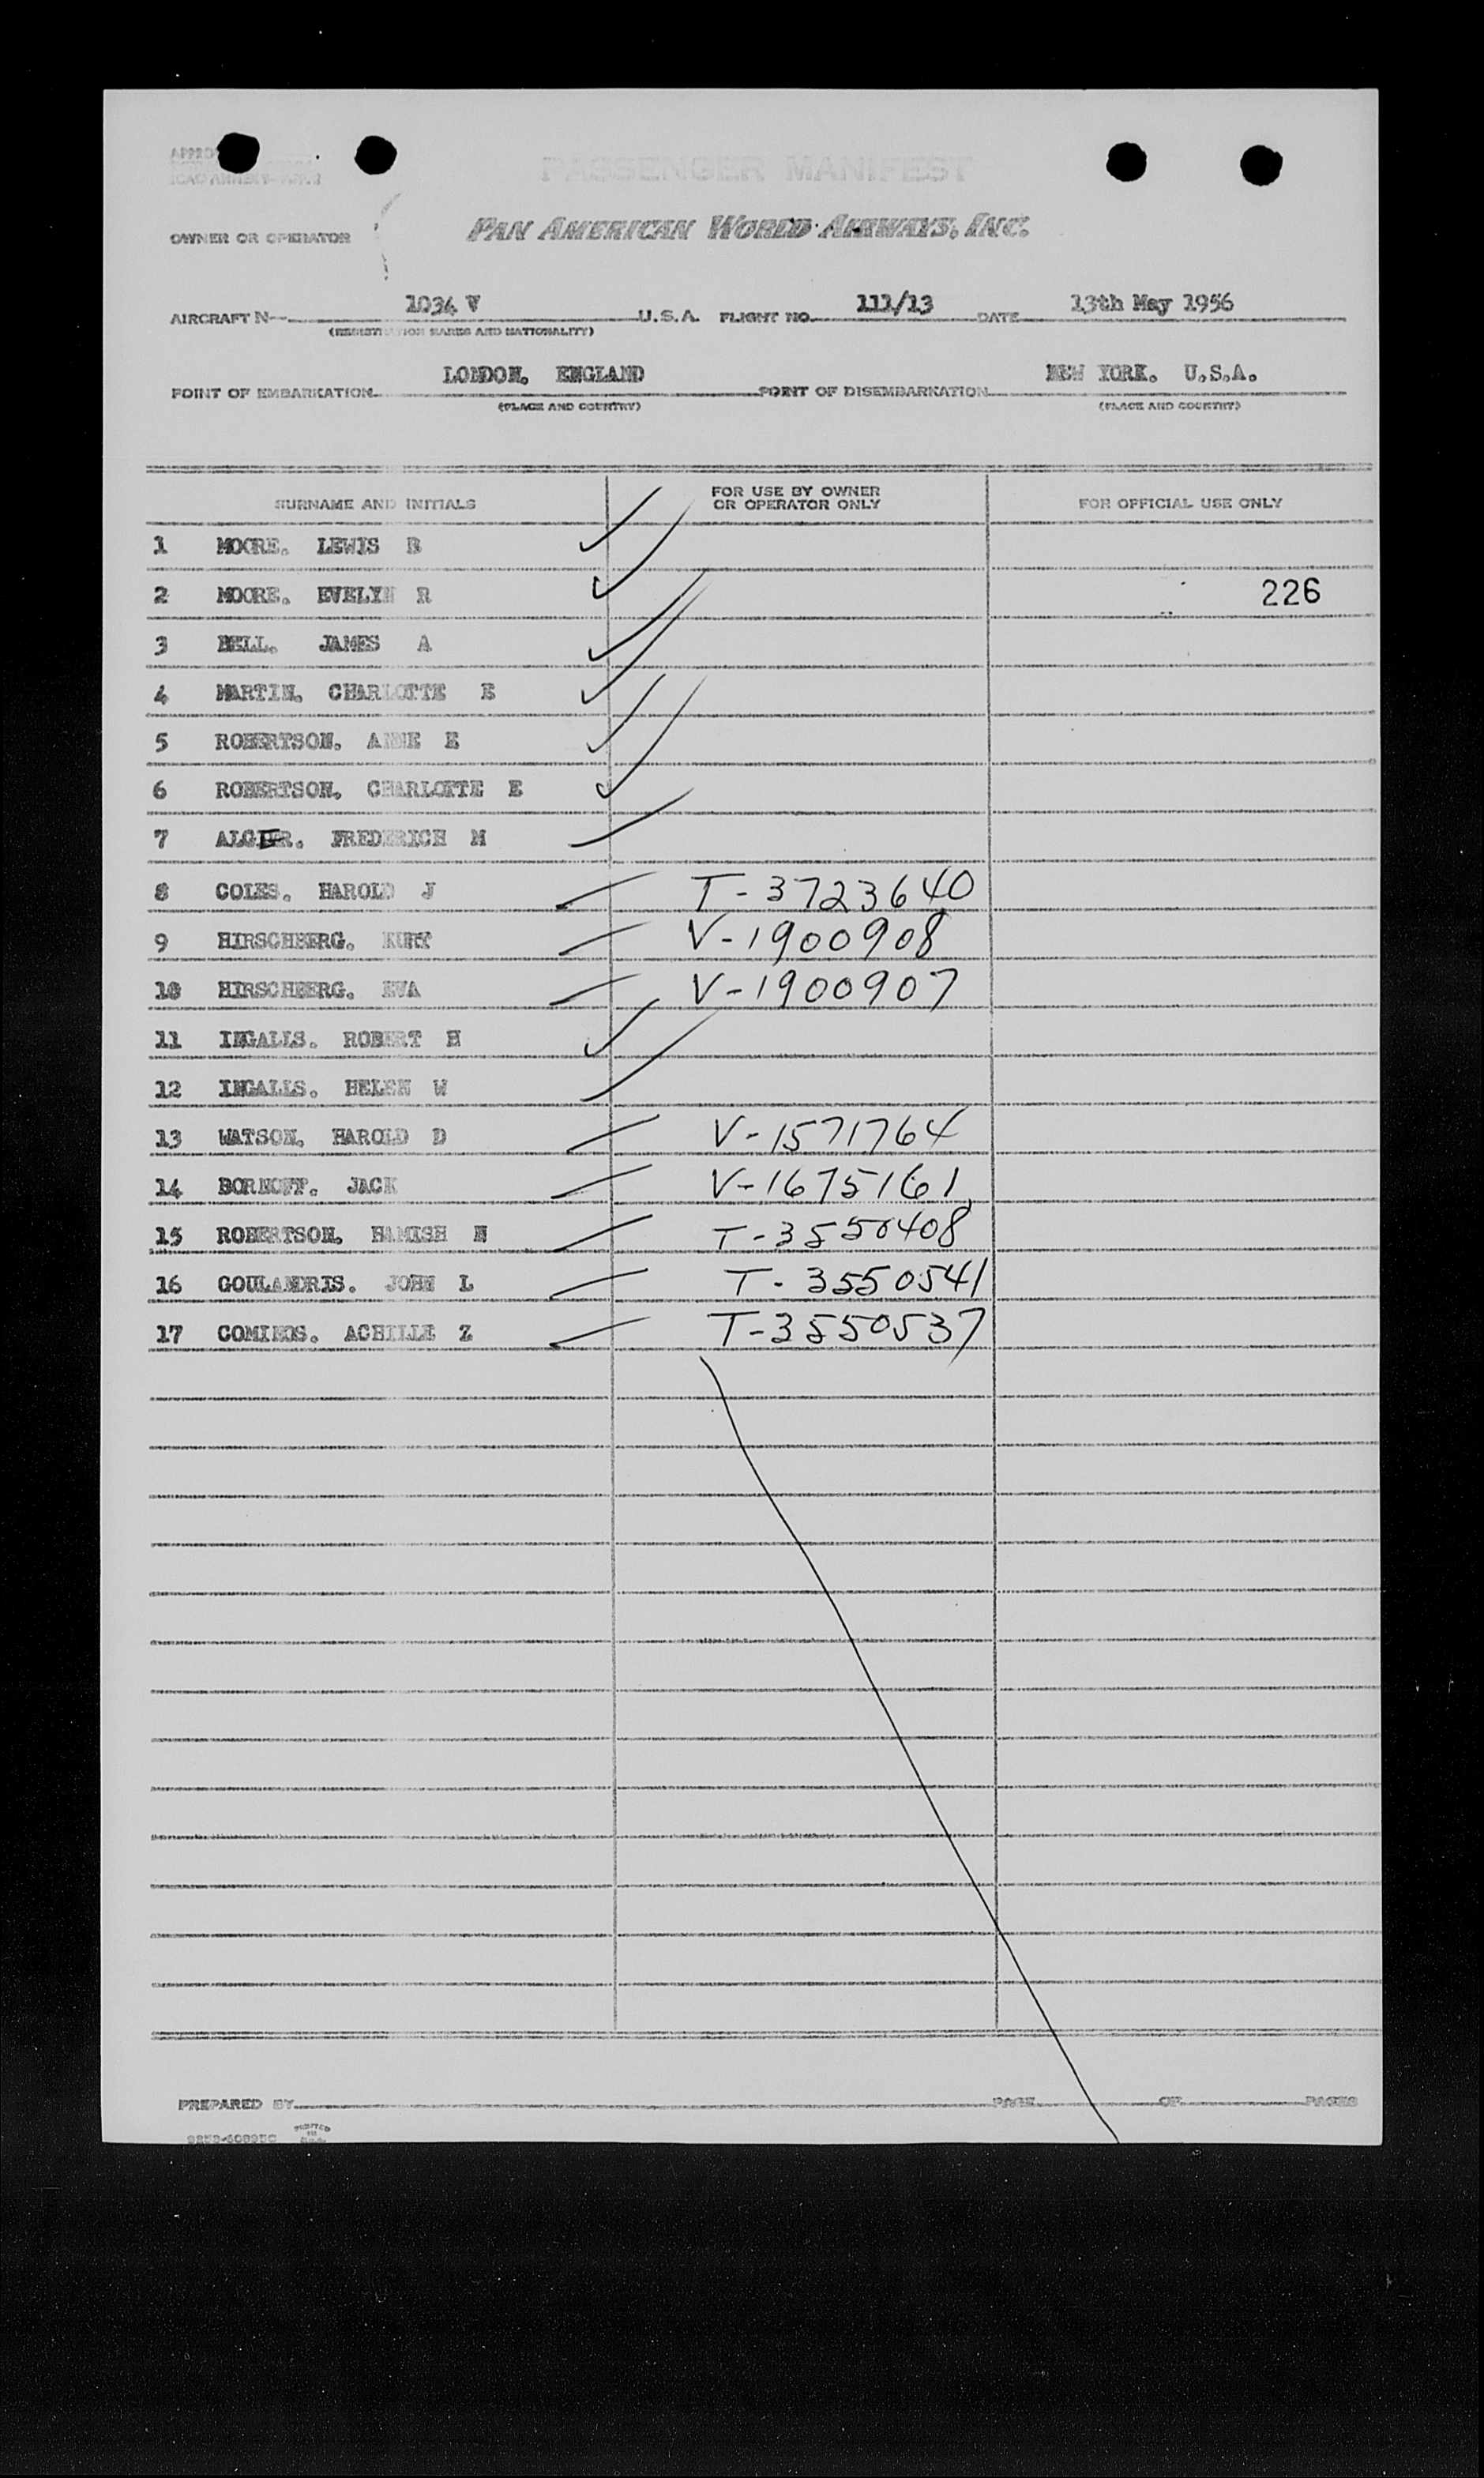 PASSENGER MANIFEST
OWNER OR OPERATOR PAN AMERICAN WORLD AIRWAYS, INC.
AIRCRAFT N- 1034 V U.S.A. FLIGHT NO. 111/13 DATE 13th May 1956
(REGISTRATION MARKS AND NATIONALITY)
POINT OF EMBARKATION LONDON. ENGLAND POINT OF DISEMBARKATION NEW YORK. U.S.A.
(PLACE AND COUNTRY) (PLACE AND COUNTRY)
SURNAME AND INITIALS FOR USE BY OWNER OR OPERATOR ONLY FOR OFFICIAL USE ONLY
1 MOORE. LEWIS B
2 MOORE. EVELYN R 226
3 BELL. JAMES A
4 MARTIN. CHARLOTTE E
5 ROBERTSON. ANNE E
6 ROBERTSON. CHARLOTTE E
7 ALGER. FREDERICH M
8 COLES. HAROLD J T-3723640
9 HIRSCHBERG. KURT V-1900908
10 HIRSCHBERG. EVA V-1900907
11 INGALLS. ROBERT H
12 INGALLS. HELEN W
13 WATSON. HAROLD D V-1571764
14 BORNOFF. JACK V-1675161
15 ROBERTSON. HAMISH N T-3550408
16 GOULANDRIS. JOHN L T-3550541
17 COMINOS. ACHILLE Z T-3550537
PREPARED BY PAGE OF PAGES